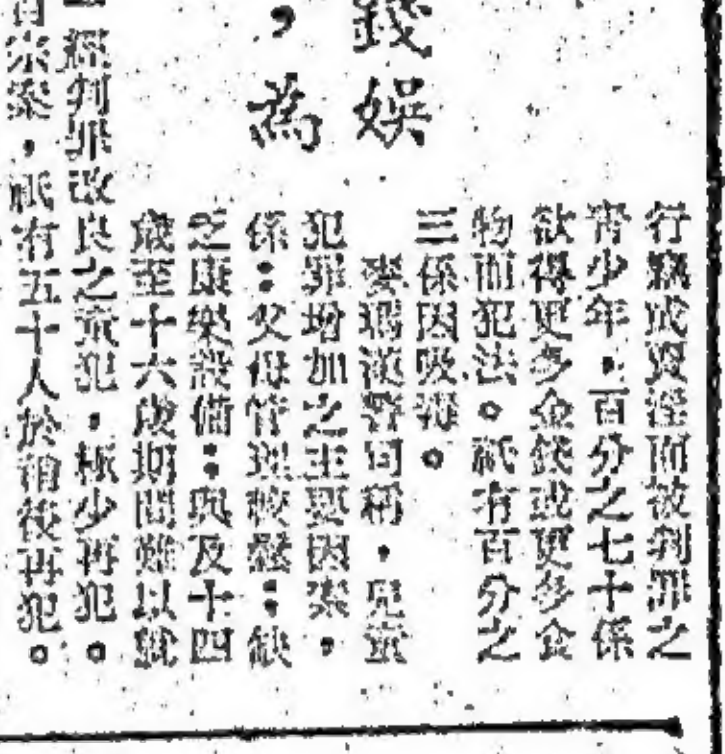 錢娛
，為
行竊或賣淫而被判罪之
青少年，百分之七十係
欲得更多金錢或更多食
物而犯法。祇有百分之
三係因吸毒。
麥瑪漢警司稱，兒童
犯罪增加之主要因素，
係：父母管理較鬆；缺
乏康樂設備；與及十四
歲至十六歲期間難以就
一經判罪改良之童犯，極少再犯。
百宗案，祇有五十人於稍後再犯。